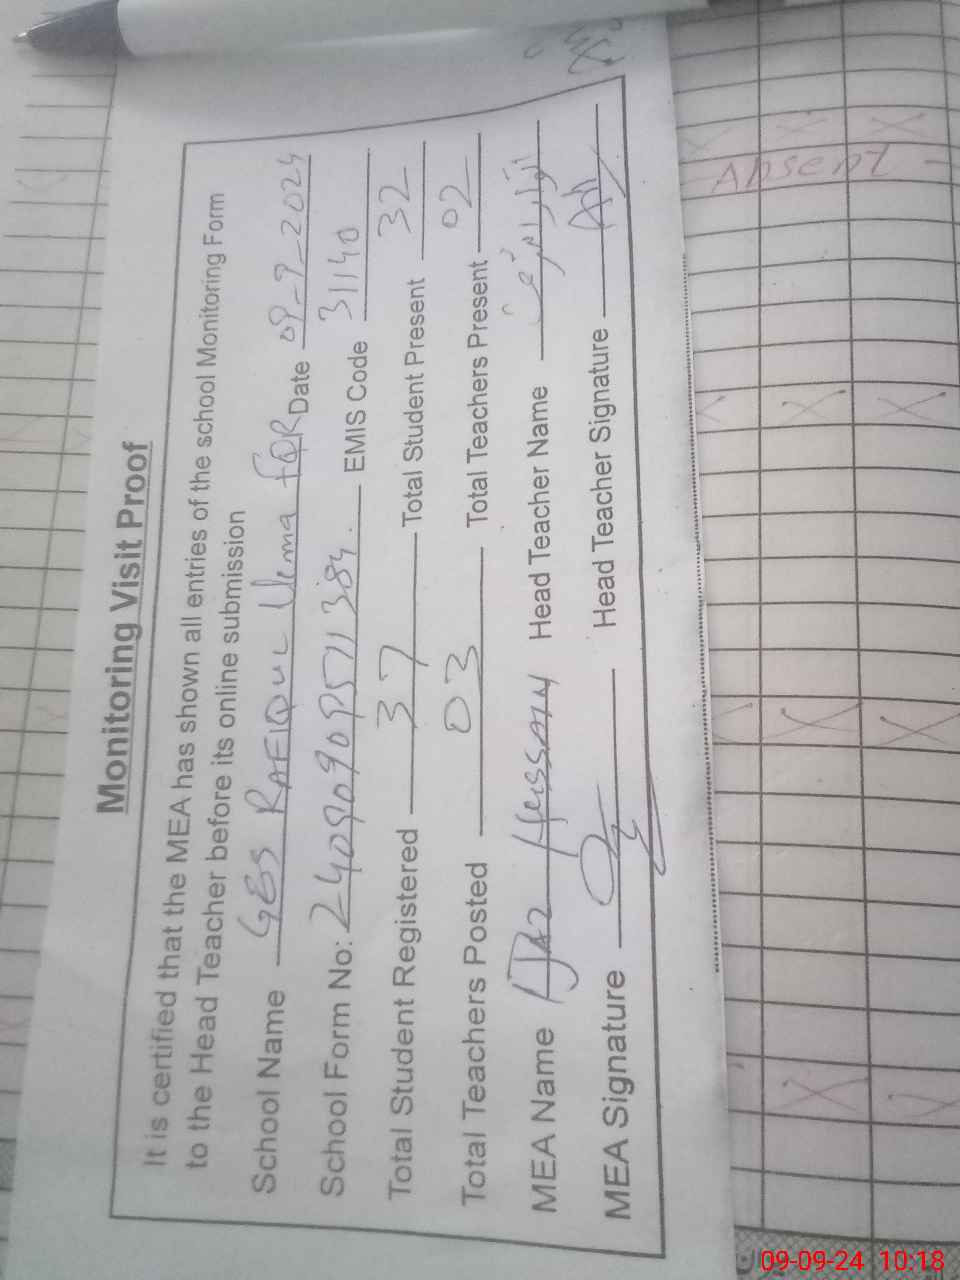 Monitoring Visit Proof
It is certified that the MEA has shown all entries of the school Monitoring Form
to the Head Teacher before its online submission
School Name GBS RAFIQUL Ulema FQR Date 09-9-2024
School Form No: 240909095711384. EMIS Code 31140
Total Student Registered 37 Total Student Present 32
Total Teachers Posted 03 Total Teachers Present 02
MEA Name IJAZ HUSSAIN Head Teacher Name
MEA Signature Head Teacher Signature
Absent
09-09-24 10:18